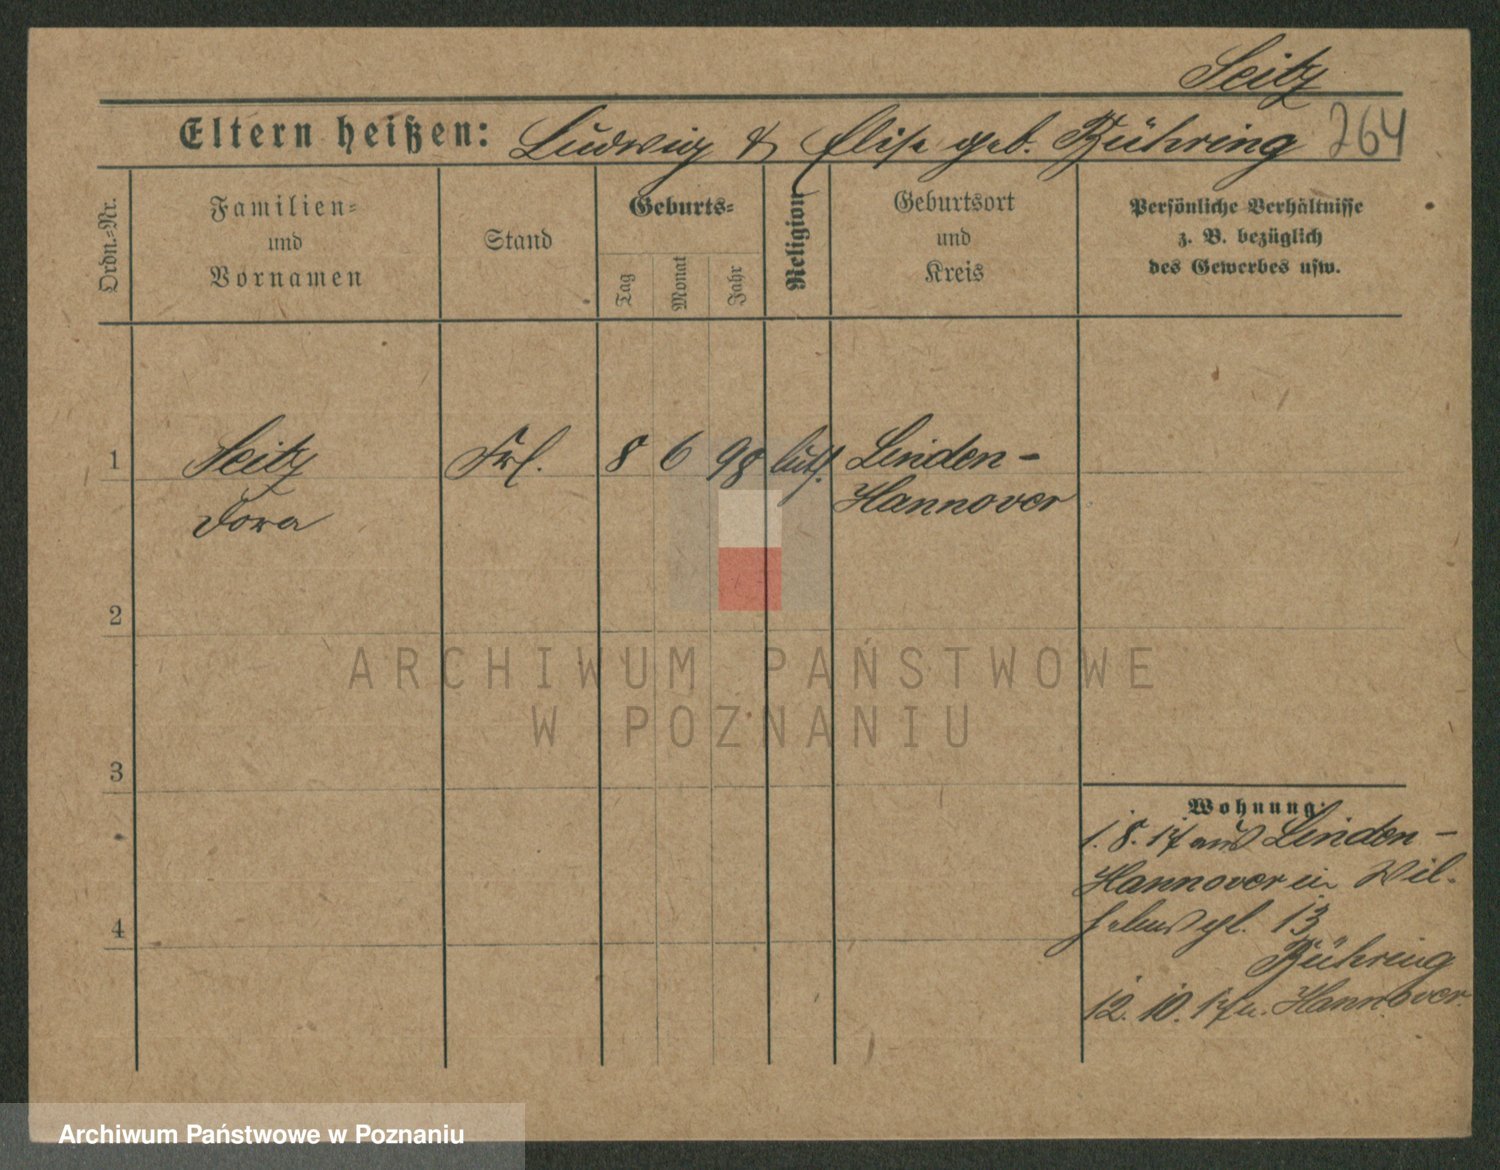 Seitz
Eltern heißen: Ludwig & Elise geb. Bühring 264
Ordn.-Nr.
Familien-
und
Vornamen
Stand
Geburts-
Tag
Monat
Jahr
Religion
Geburtsort
und
Kreis
Persönliche Verhältnisse
z. B. bezüglich
des Gewerbes usw.
1 Seitz Frl. 8 6 98 luth. Linden-
Dora Hannover
2
ARCHIWUM PAŃSTWOWE
W POZNANIU
3
Wohnung:
1. 8. 17 aus Linden-
Hannover in Wil-
helmspl. 13
4
Bühring
12. 10. 17 n. Hannover.
Archiwum Państwowe w Poznaniu